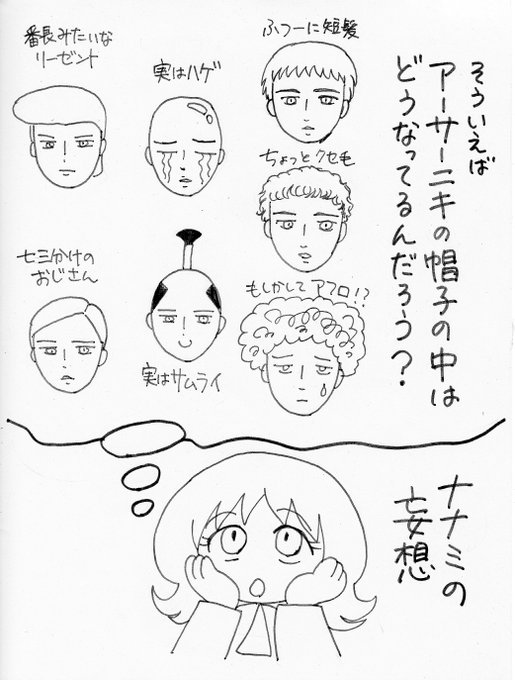 そういえば
アーサーニキの帽子の中は
どうなってるんだろう？
ふつーに短髪
ちょっとクセ毛
もしかしてアフロ！？
実はハゲ
実はサムライ
番長みたいな
リーゼント
七三分けの
おじさん
ナナミの
妄想